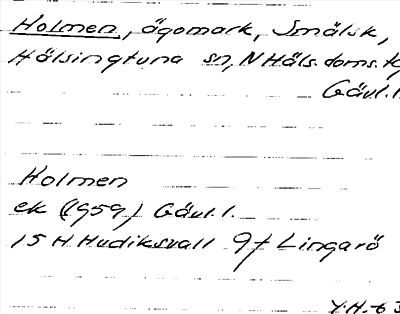 Holmen, ägomark, Smälsk,
Hälsingtuna sn, N Häls. doms. tg
Gävl. l.
Holmen
ek (1959) Gävl. l.
15 H Hudiksvall 9f Lingarö
Y.H.-63